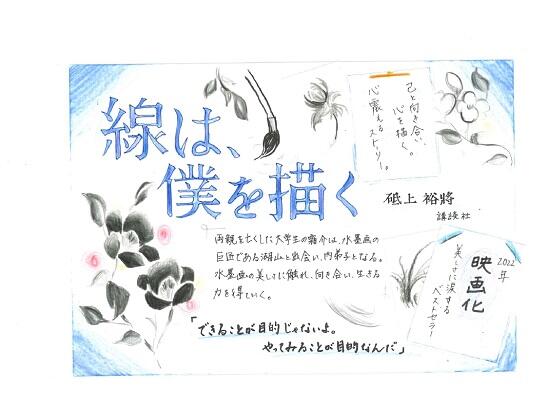 線は、
僕を描く
己と向き合い、
心を描く。
心震えるストーリー。
砥上 裕將
講談社
両親を亡くした大学生の霜介は、水墨画の
巨匠である湖山と出会い、内弟子となる。
水墨画の美しさに触れ、向き合い、生きる
力を得ていく。
2022年
映画化
美しさに涙する
ベストセラー
「できることが目的じゃないよ。
やってみることが目的なんだ」